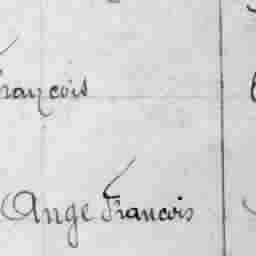 François
Ange Francois